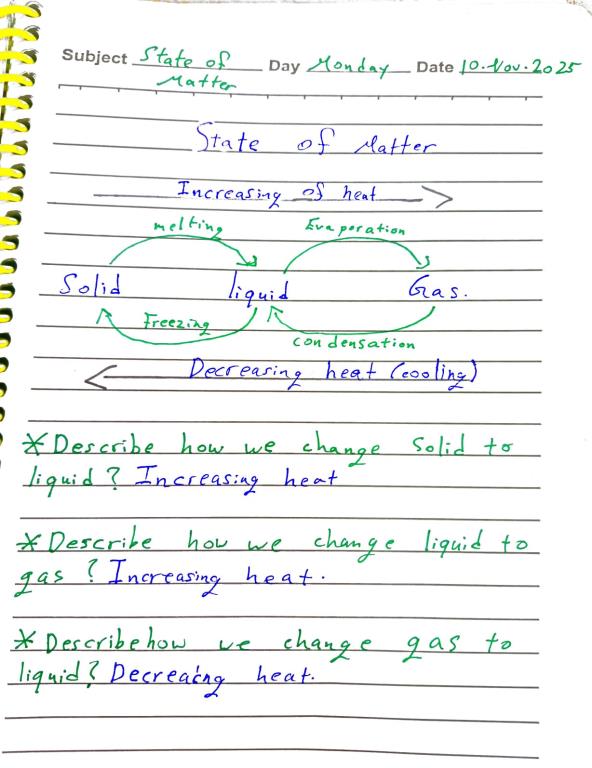 Subject State of Day Monday Date 10.Nov.2025
Matter
State of Matter
Increasing of heat
melting Evaporation
Solid liquid Gas.
Freezing condensation
Decreasing heat (cooling)
* Describe how we change Solid to
liquid? Increasing heat
* Describe how we change liquid to
gas? Increasing heat.
* Describe how we change gas to
liquid? Decreacng heat.